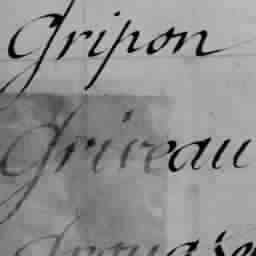 Gripon
Griveau